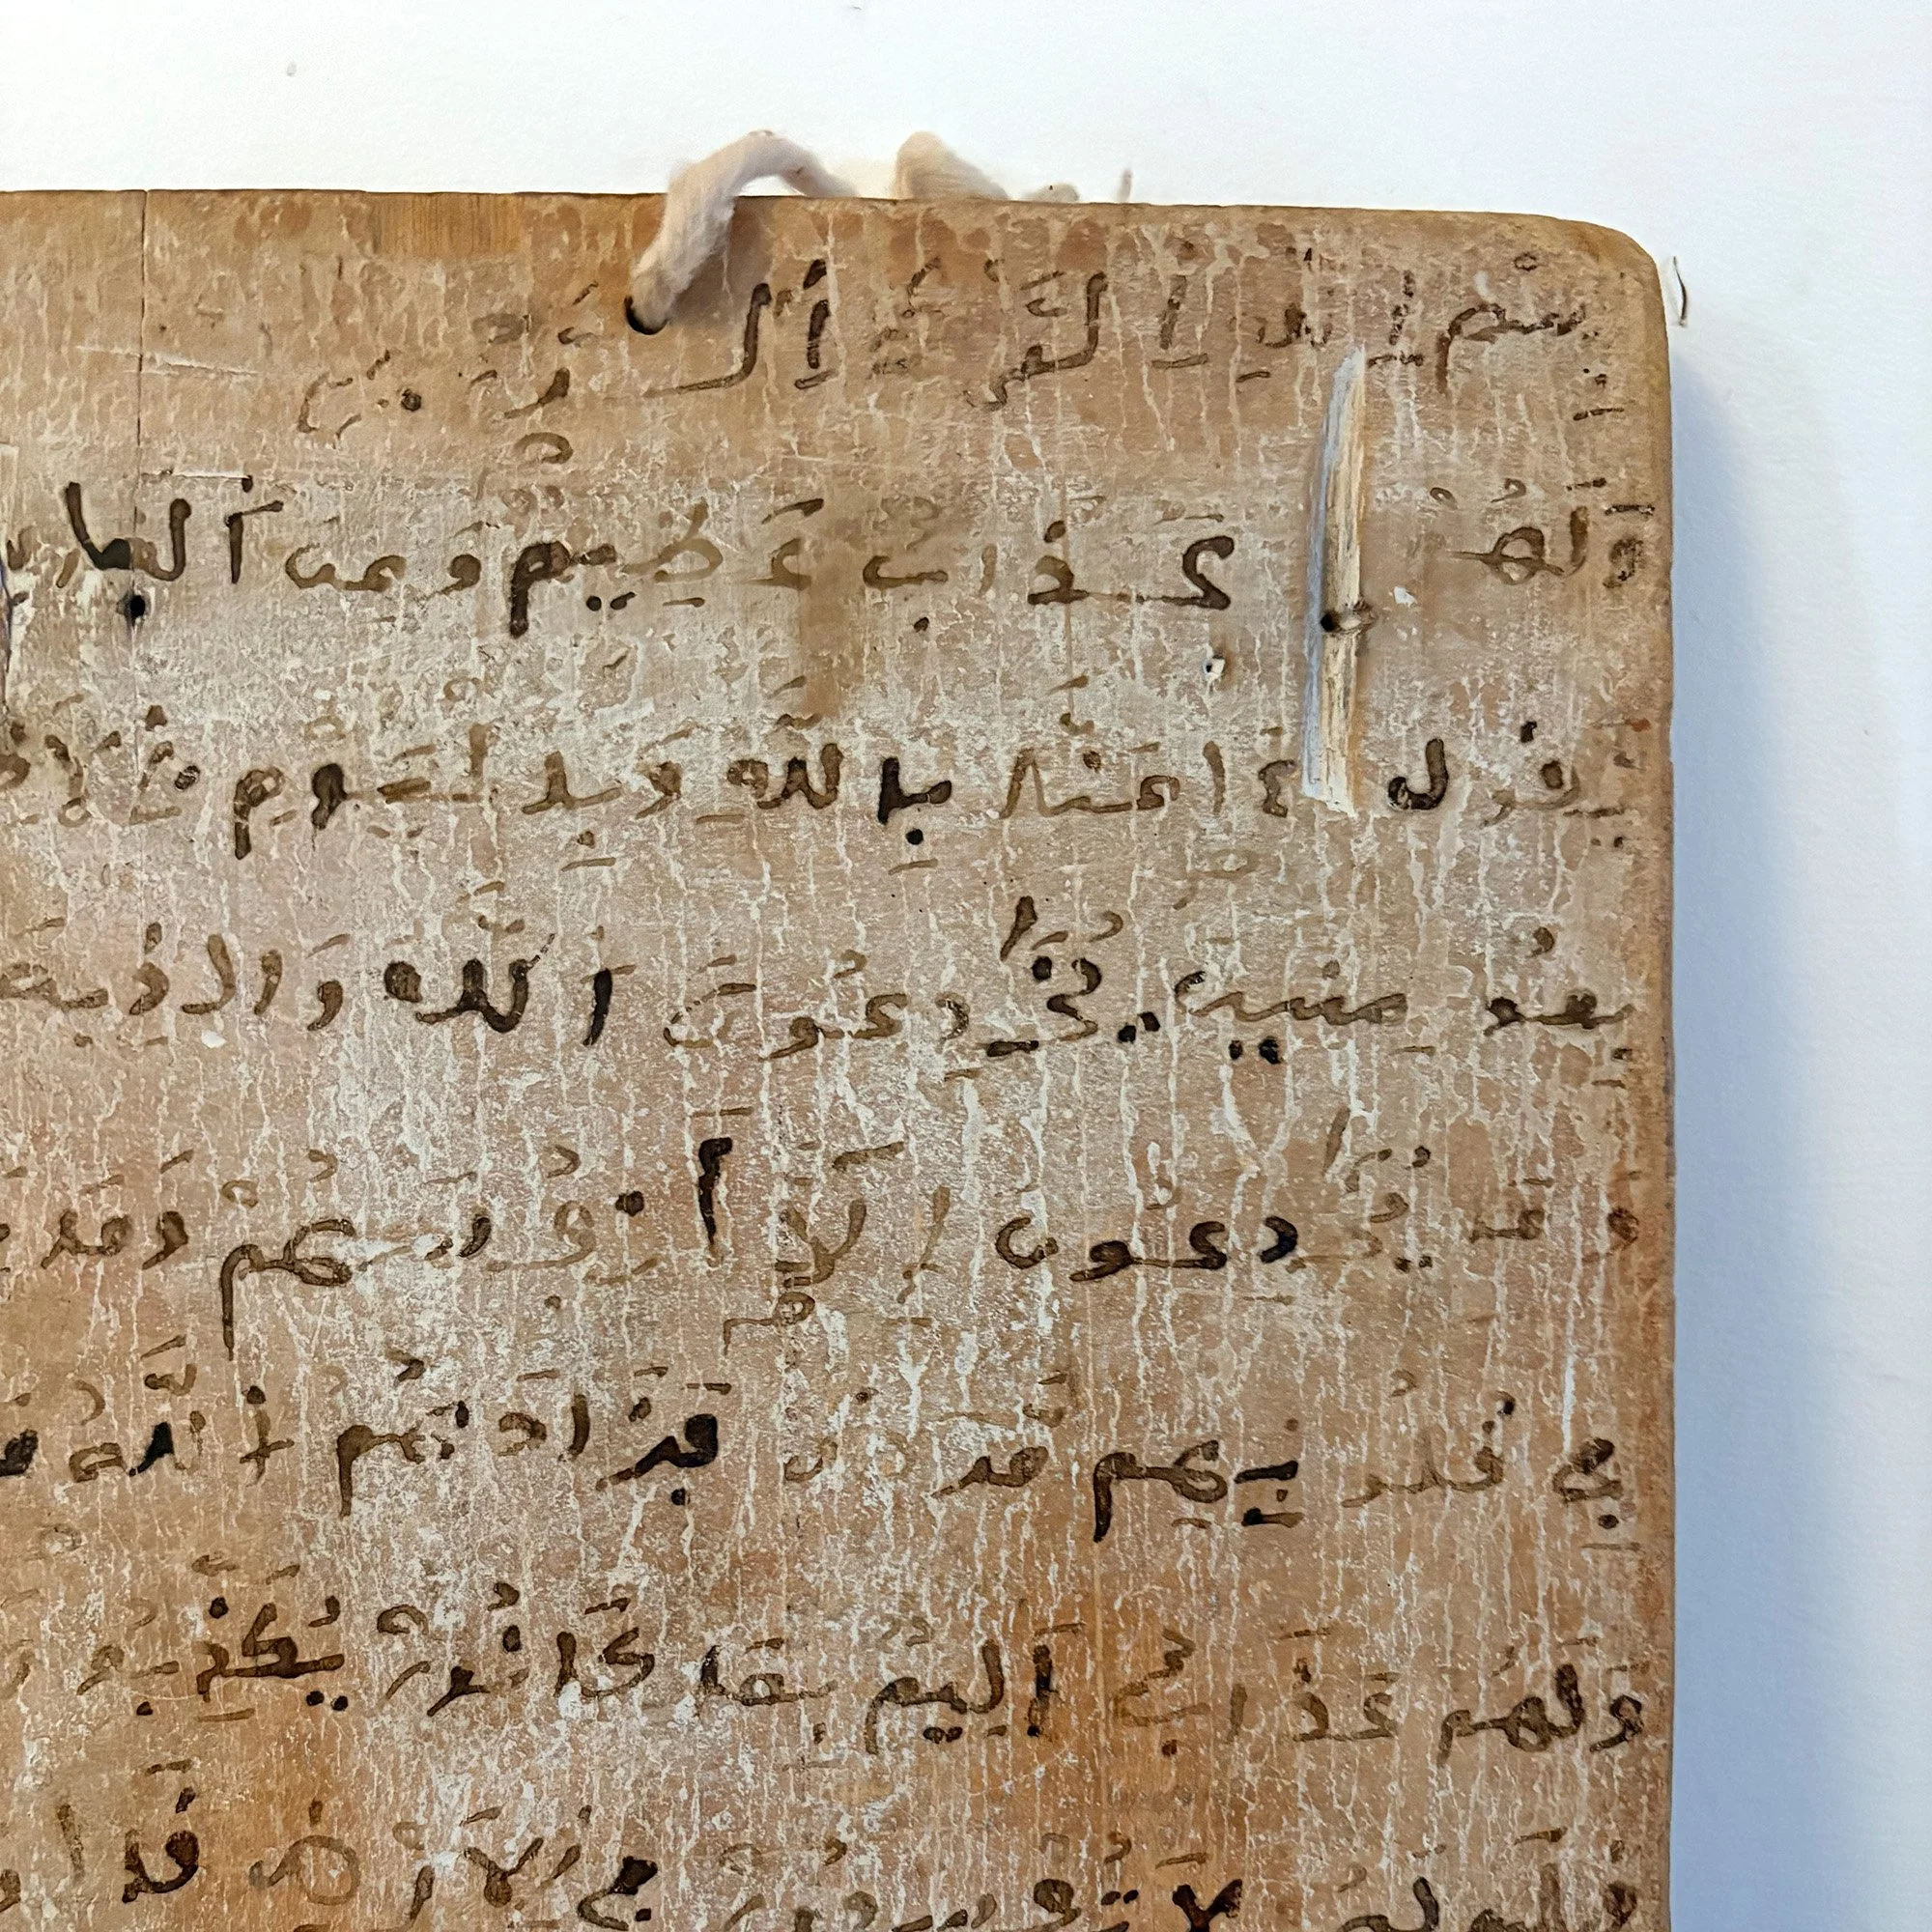 بسم الله الرحمن الر
ولهم عذاب عظيم ومن الناس
يقول ءامنا بالله وباليوم الا
بمومنين يخدعون الله والذين
وما يخدعون إلا أنفسهم وما
في قلوبهم مرض فزادهم الله
ولهم عذاب أليم بما كانوا يكذبو
لهم لا تفسدوا في الأرض قالو